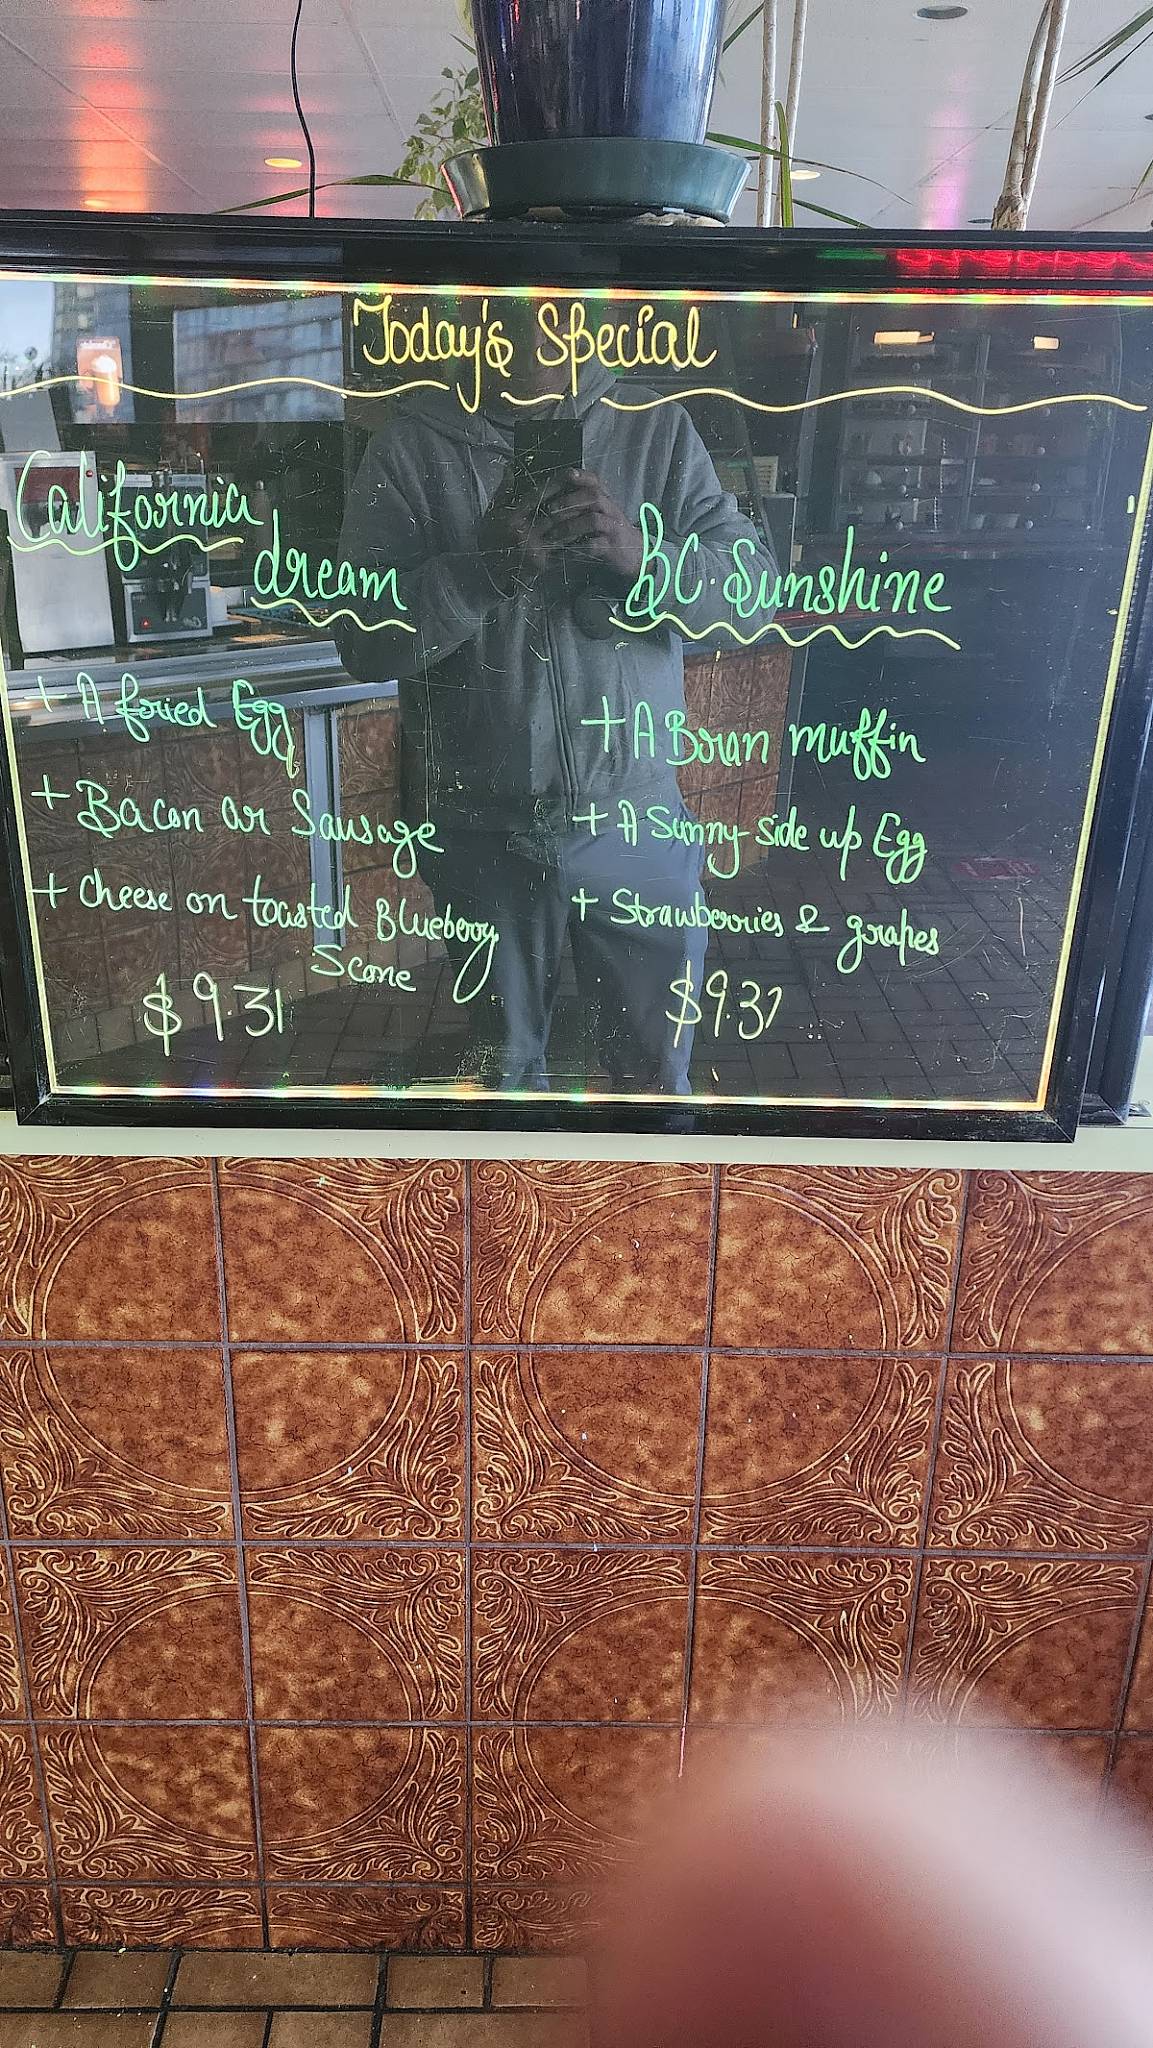 Today's Special
California
dream
+ A fried Egg
+ Bacon or Sausage
+ Cheese on toasted Blueberry
Scone
$9.31
BC. Sunshine
+ A Bran muffin
+ A Sunny-side up Egg
+ Strawberries & grapes
$9.31